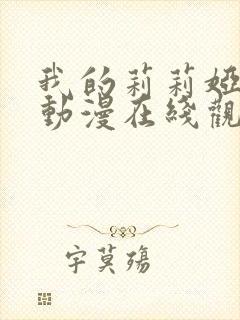 我的莉莉婭
動漫在綫觀
字莫殤